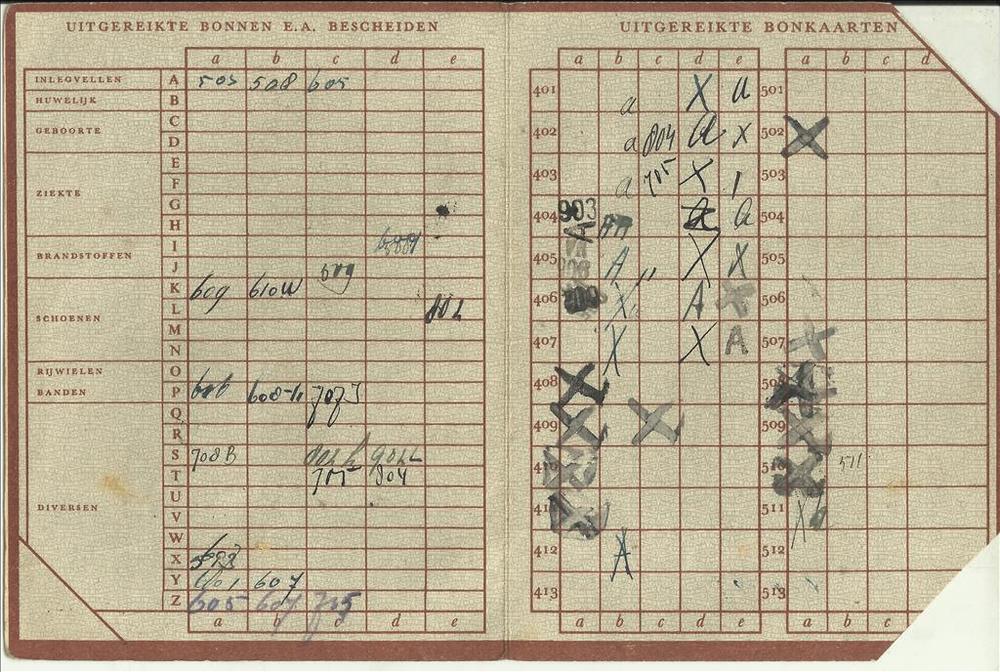 UITGEREIKTE BONNEN E.A. BESCHEIDEN
a b c d e
INLEGVELLEN A 503 508 605
HUWELIJK B
C
GEBOORTE D
E
F
ZIEKTE
G
H
I
BRANDSTOFFEN J
K 609 610W
L
SCHOENEN M
N
RIJWIELEN O
BANDEN P 606 608-11
Q
R
S 708B
T 705 804
U
DIVERSEN V
W
X
Y 601 607
Z 605 607 705
a b c d e
UITGEREIKTE BONKAARTEN
a b c d e a b c d
401 a X a 501
402 a 804 a X 502 X
403 a 705 X 503
404 903 a a 504
405 A X X 505
406 X A X 506
407 X X A 507 X
408 X 508 X
409 X X 509 X
410 X 510 X 511
411 X 511
412 A 512
413 513
a b c d e a b c